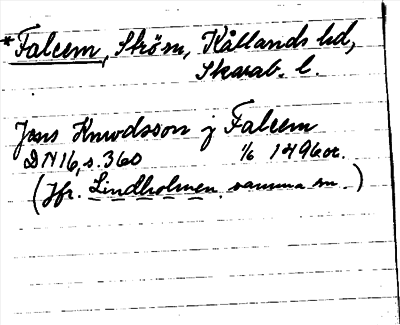 *Falcem, Ström, Kållands hd,
Skarab. l.
Jxns Knwdsson j Falcem
DN16, s. 360 1/6 1496 or.
(Jfr. Lindholmen, samma sn.)